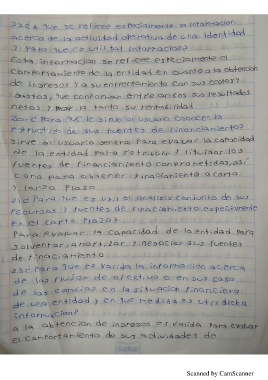 ¿A que se refiere especialmente la informacion
acerca de la actividad operativa de una identidad
y para que es util tal informacion?
Esta informacion se refiere especialmente al
comportamiento de la entidad en cuanto a la obtencion
de ingresos y a su enfrentamiento con sus costos y
gastos, que conforman entre ambos sus resultados
netos, y por lo tanto su rentabilidad
¿Para que le sirve al usuario conocer la
estructura de sus fuentes de financiamiento?
Sirve al usuario general para evaluar la capacidad
de la entidad para
fuentes de financiamiento comprometidas, asi
como para obtener financiamiento a corto
y largo plazo
21¿ Para que es util el analisis conjunto de sus
recursos y fuentes de financiamiento, especialmente
en el corto plazo?
Para evaluar la capacidad de la entidad para
solventar, amortizar y negociar sus fuentes
de financiamiento
22¿ Para que es valida la informacion acerca
de los flujos de efectivo o en su caso
de los cambios en la situacion financiera
de una entidad y en que medida es util dicha
informacion?
a la obtencion de ingresos es valida para evaluar
el comportamiento de sus actividades de
Scanned by CamScanner